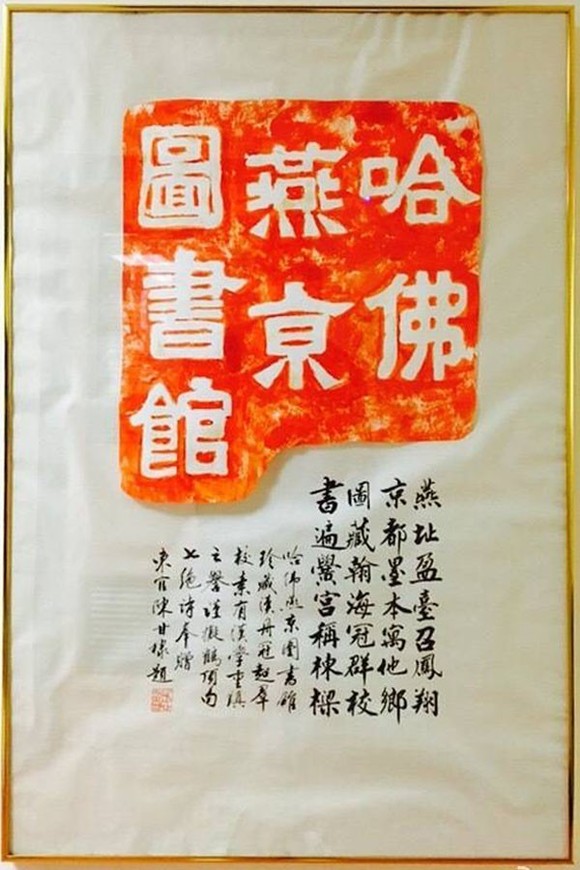 哈佛
燕京
圖書館
燕址盈臺召鳳翔
京都墨本寓他鄉
圖藏翰海冠群校
書遍黌宮稱棟樑
哈佛燕京圖書館
珍藏漢冊冠超羣
校素有漢學重鎮
之譽謹擬鶴頂句
七絕詩奉贈
東官陳甘題